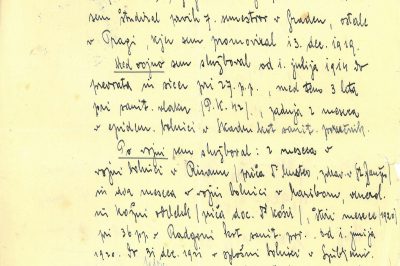 sem študiral prvih 7 semestrov v Gradcu, ostale
v Pragi, kjer sem promoviral 13. dec. 1919.
Med vojno sem služboval od 1. julija 1914 do
prevrata in sicer pri 27. p.p., med tem 3 leta
pri sanit. vlaku (P.K. 42/., zadnja 2 meseca
v epidem. bolnici v Skadru kot sanit. poročnik.
Po vojni sem služboval: 2 meseca v
vojni bolnici v /priča Dr zdrav. v St.
in dva meseca v vojni bolnici v Mariboru, vener.
in kožni oddelek /priča doc. Dr Koželj/, štiri mesece 1920/
pri 36 pp v Radgoni kot sanit. por. od 1. junija
1920. do 31. dec. 1921 v splošni bolnici v Ljubljani.